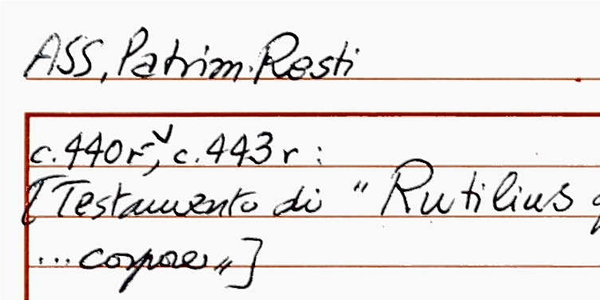 ASS, Patrim. Resti
c. 440 r, v, c. 443 r :
[Testamento di " Rutilius
... corpore„]